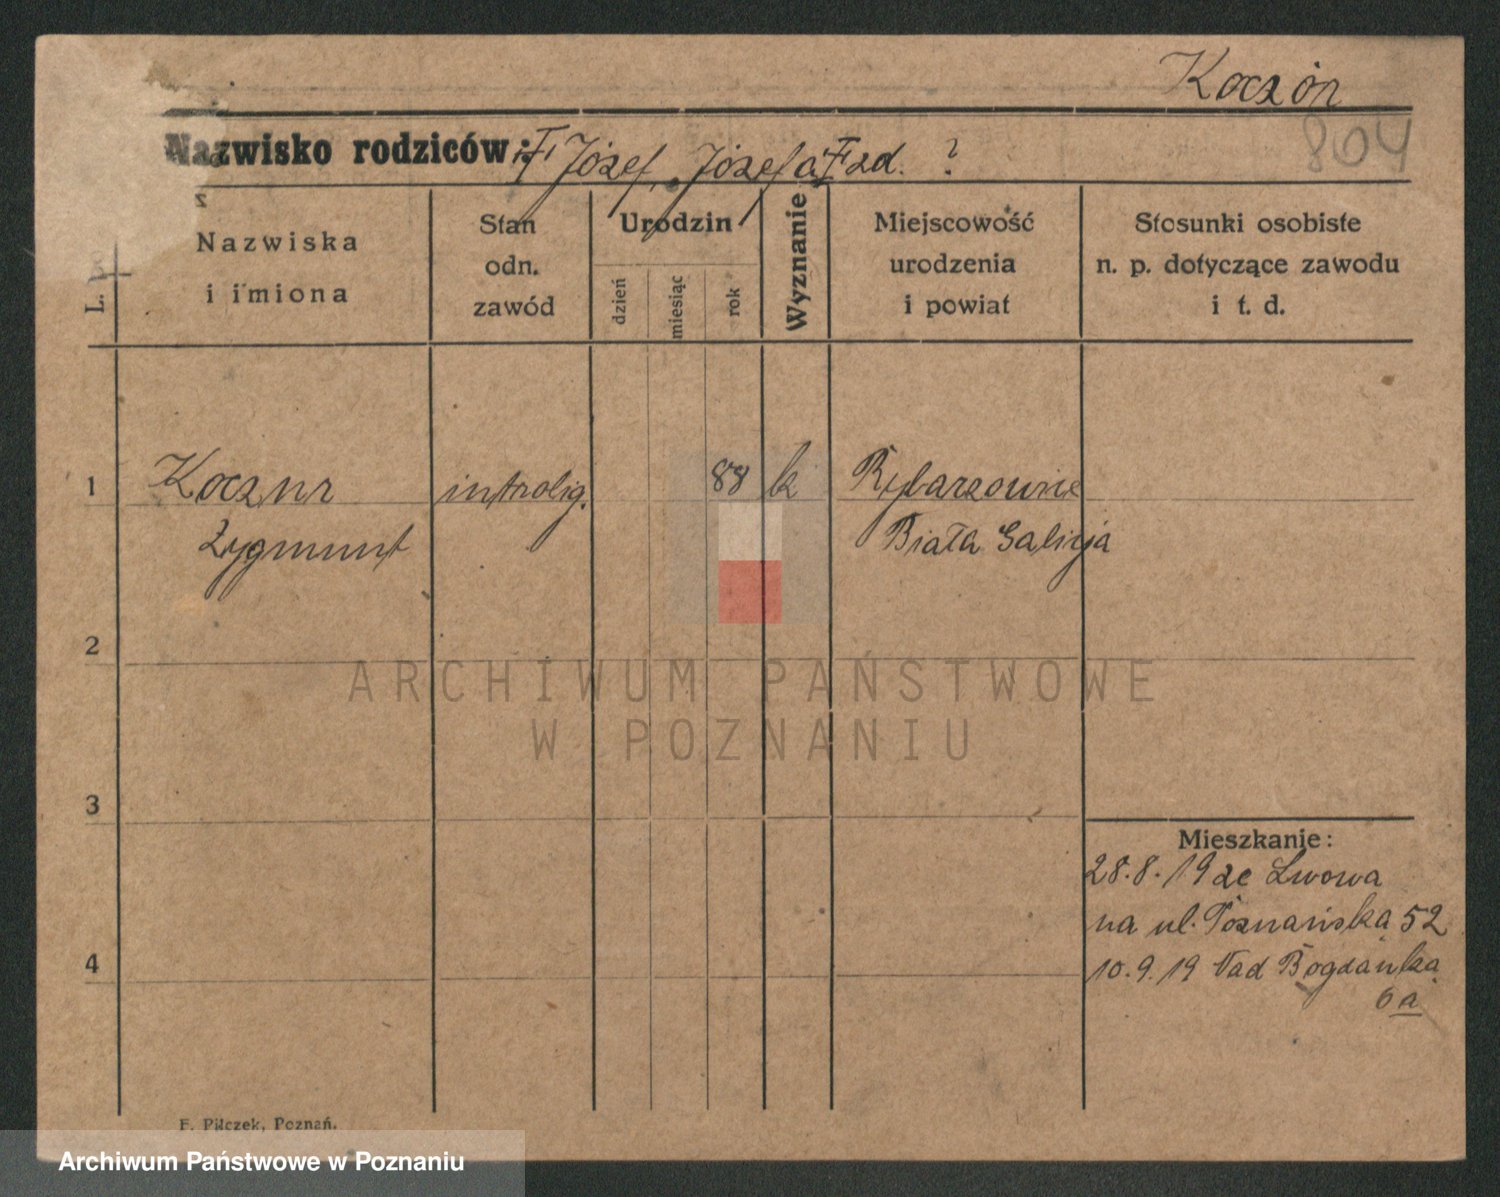 Koczór
804
Nazwisko rodziców: † Józef, Józefa † zd. ?
L.
Nazwiska
i imiona
Stan
odn.
zawód
Urodzin
dzień
miesiąc
rok
Wyznanie
Miejscowość
urodzenia
i powiat
Stosunki osobiste
n. p. dotyczące zawodu
i t. d.
1
Koczur
introlig.
88
k
Rybarzowice
Zygmunt
Biała Galicja
2
ARCHIWUM PAŃSTWOWE
W POZNANIU
3
Mieszkanie:
28.8.19 ze Lwowa
na ul. Poznańska 52
4
10.9.19 Nad Bogdanką
6a
F. Pilczek, Poznań.
Archiwum Państwowe w Poznaniu